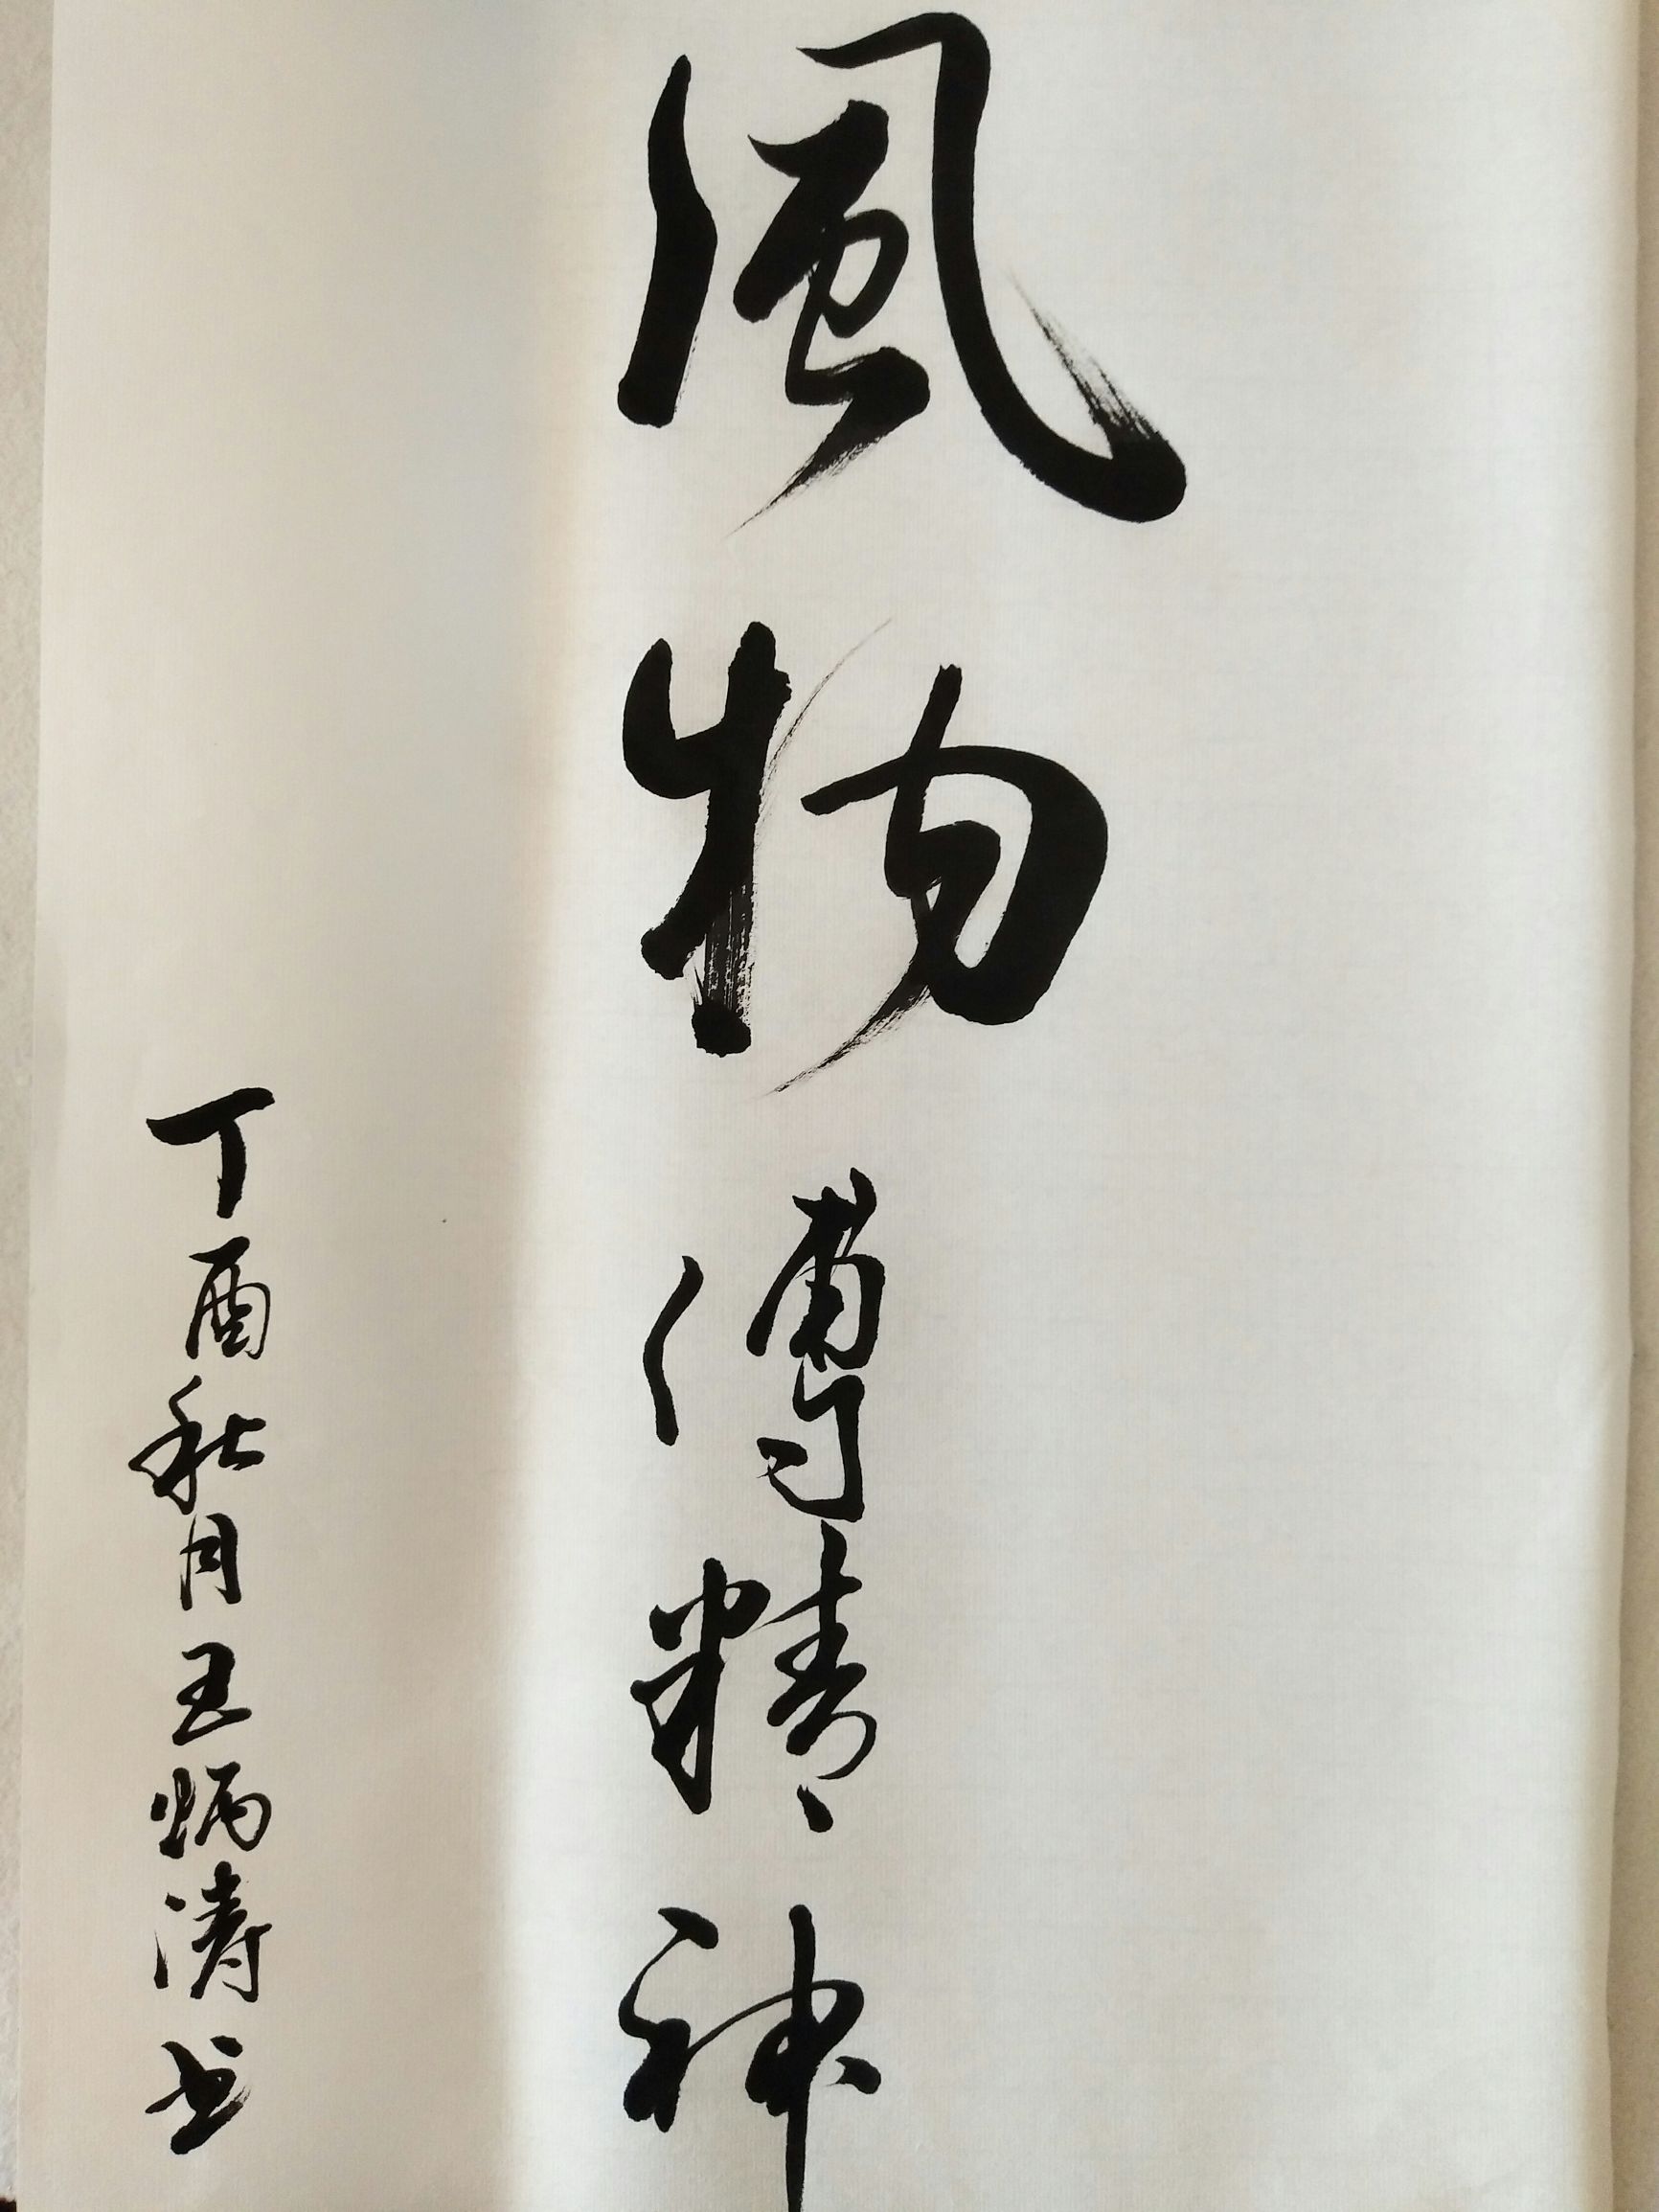 風物傳精神
丁酉秋月王炳濤书